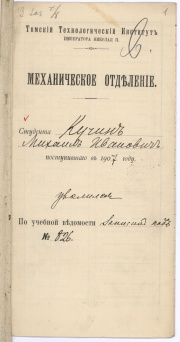 Томскій Технологическій Институтъ
ИМПЕРАТОРА НИКОЛАЯ II.
МЕХАНИЧЕСКОЕ ОТДѢЛЕНІЕ.
Студента Кучинъ
Михаилъ Ивановичъ
поступившаго въ 1907 году.
уволился
По учебной вѣдомости записанъ подъ
№ 826.